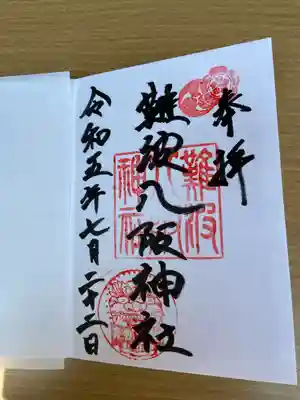 奉拝
難波八阪神社
難波八阪神社
令和五年七月二十二日